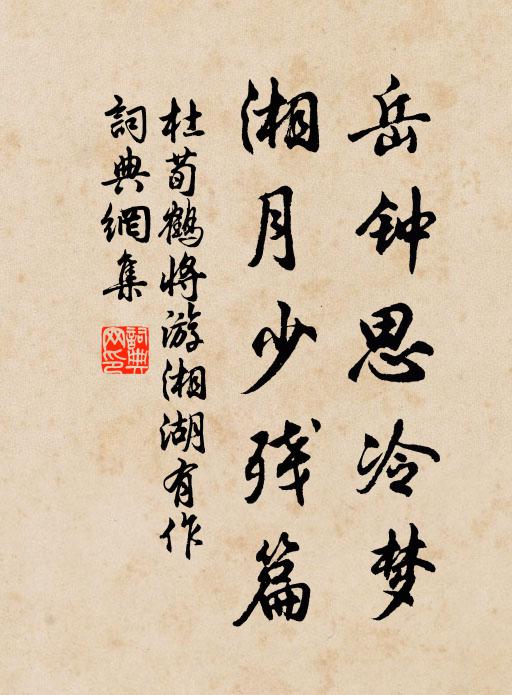 岳钟思冷梦
湘月少残篇
杜荀鹤将游湘湖有作
詞典網集
詞典网印